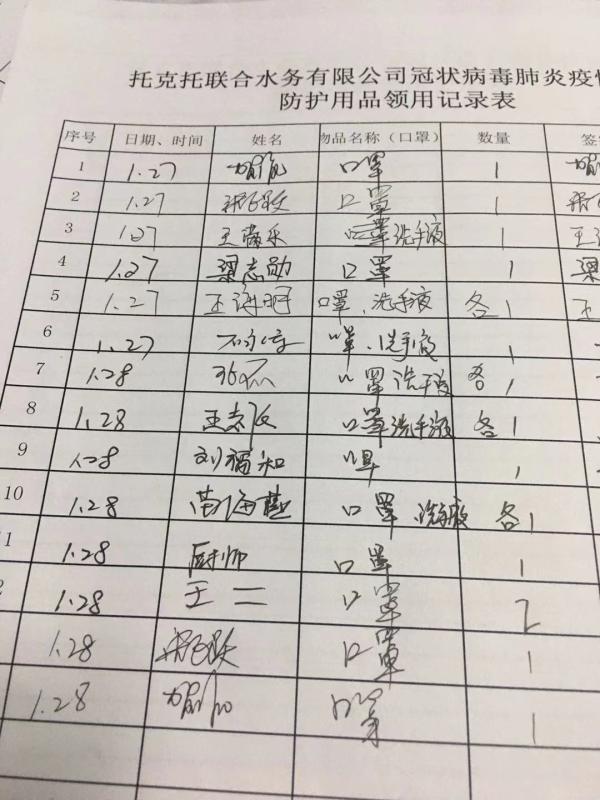 托克托联合水务有限公司冠状病毒肺炎疫
防护用品领用记录表
序号 日期、时间 姓名 物品名称（口罩） 数量
1 1.27 口罩 1
2 1.27 口罩 1
3 1.27 王 口罩洗手液 1 王
4 1.27 梁志勋 口罩 1 梁
5 1.27 王 明 口罩、洗手液 各1 王
6 1.27 口罩、洗手液 1
7 1.28 口罩洗手液 各1
8 1.28 王志 口罩洗手液 各1
9 1.28 刘福知 口罩 1
10 1.28 口罩 洗手液 各1
1 1.28 厨师 口罩 1
2 1.28 王二 口罩 2
1.28 口罩 1
1.28 口罩 1